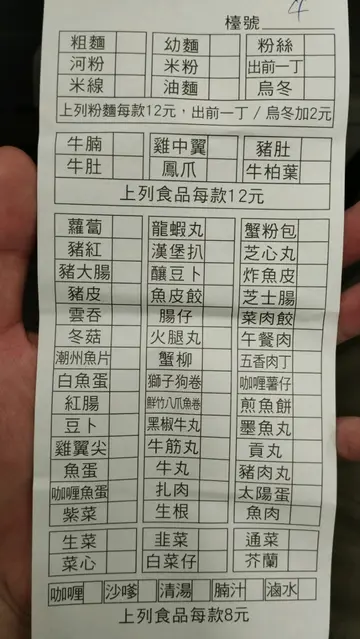 檯號 4
粗麵 幼麵 粉絲
河粉 米粉 出前一丁
米線 油麵 烏冬
上列粉麵每款12元，出前一丁/烏冬加2元
牛腩 雞中翼 豬肚
牛肚 鳳爪 牛柏葉
上列食品每款12元
蘿蔔 龍蝦丸 蟹粉包
豬紅 漢堡扒 芝心丸
豬大腸 釀豆卜 炸魚皮
豬皮 魚皮餃 芝士腸
雲吞 腸仔 菜肉餃
冬菇 火腿丸 午餐肉
潮州魚片 蟹柳 五香肉丁
白魚蛋 獅子狗卷 咖喱薯仔
紅腸 鮮竹八爪魚卷 煎魚餅
豆卜 黑椒牛丸 墨魚丸
雞翼尖 牛筋丸 貢丸
魚蛋 牛丸 豬肉丸
咖喱魚蛋 扎肉 太陽蛋
紫菜 生根 魚肉
生菜 韭菜 通菜
菜心 白菜仔 芥蘭
咖喱 沙嗲 清湯 腩汁 滷水
上列食品每款8元